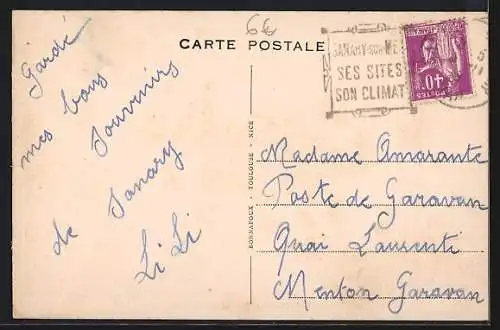 6€
CARTE POSTALE
SANARY-SUR-MER
SES SITES
SON CLIMAT
POSTES
40c
Gardé
mes bons
Souvenirs
de Sanary
LiLi
BONNAFOUX - TOULOUSE - NICE
Madame Amarante
Poste de Garavan
Quai Laurenti
Menton Garavan